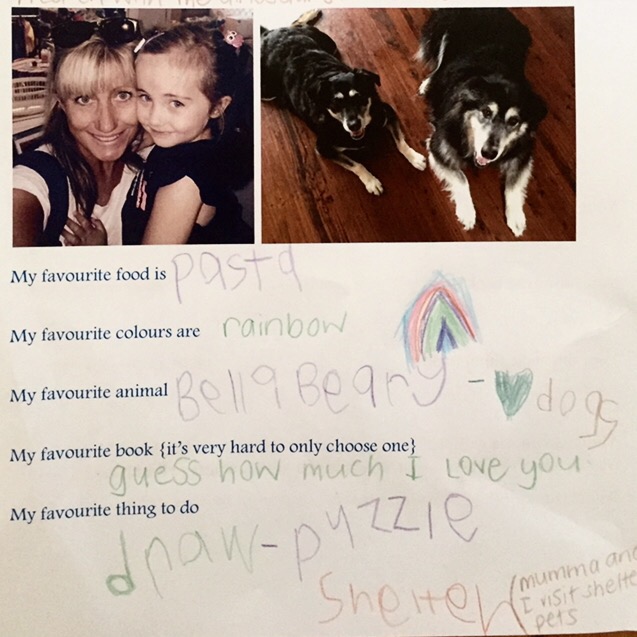 My favourite food is pasta
My favourite colours are rainbow
My favourite animal Bella Beary - dogs
My favourite book {it's very hard to only choose one}
guess how much I love you
My favourite thing to do
draw-puzzle
Shelter (mumma and
I visit shelte
pets